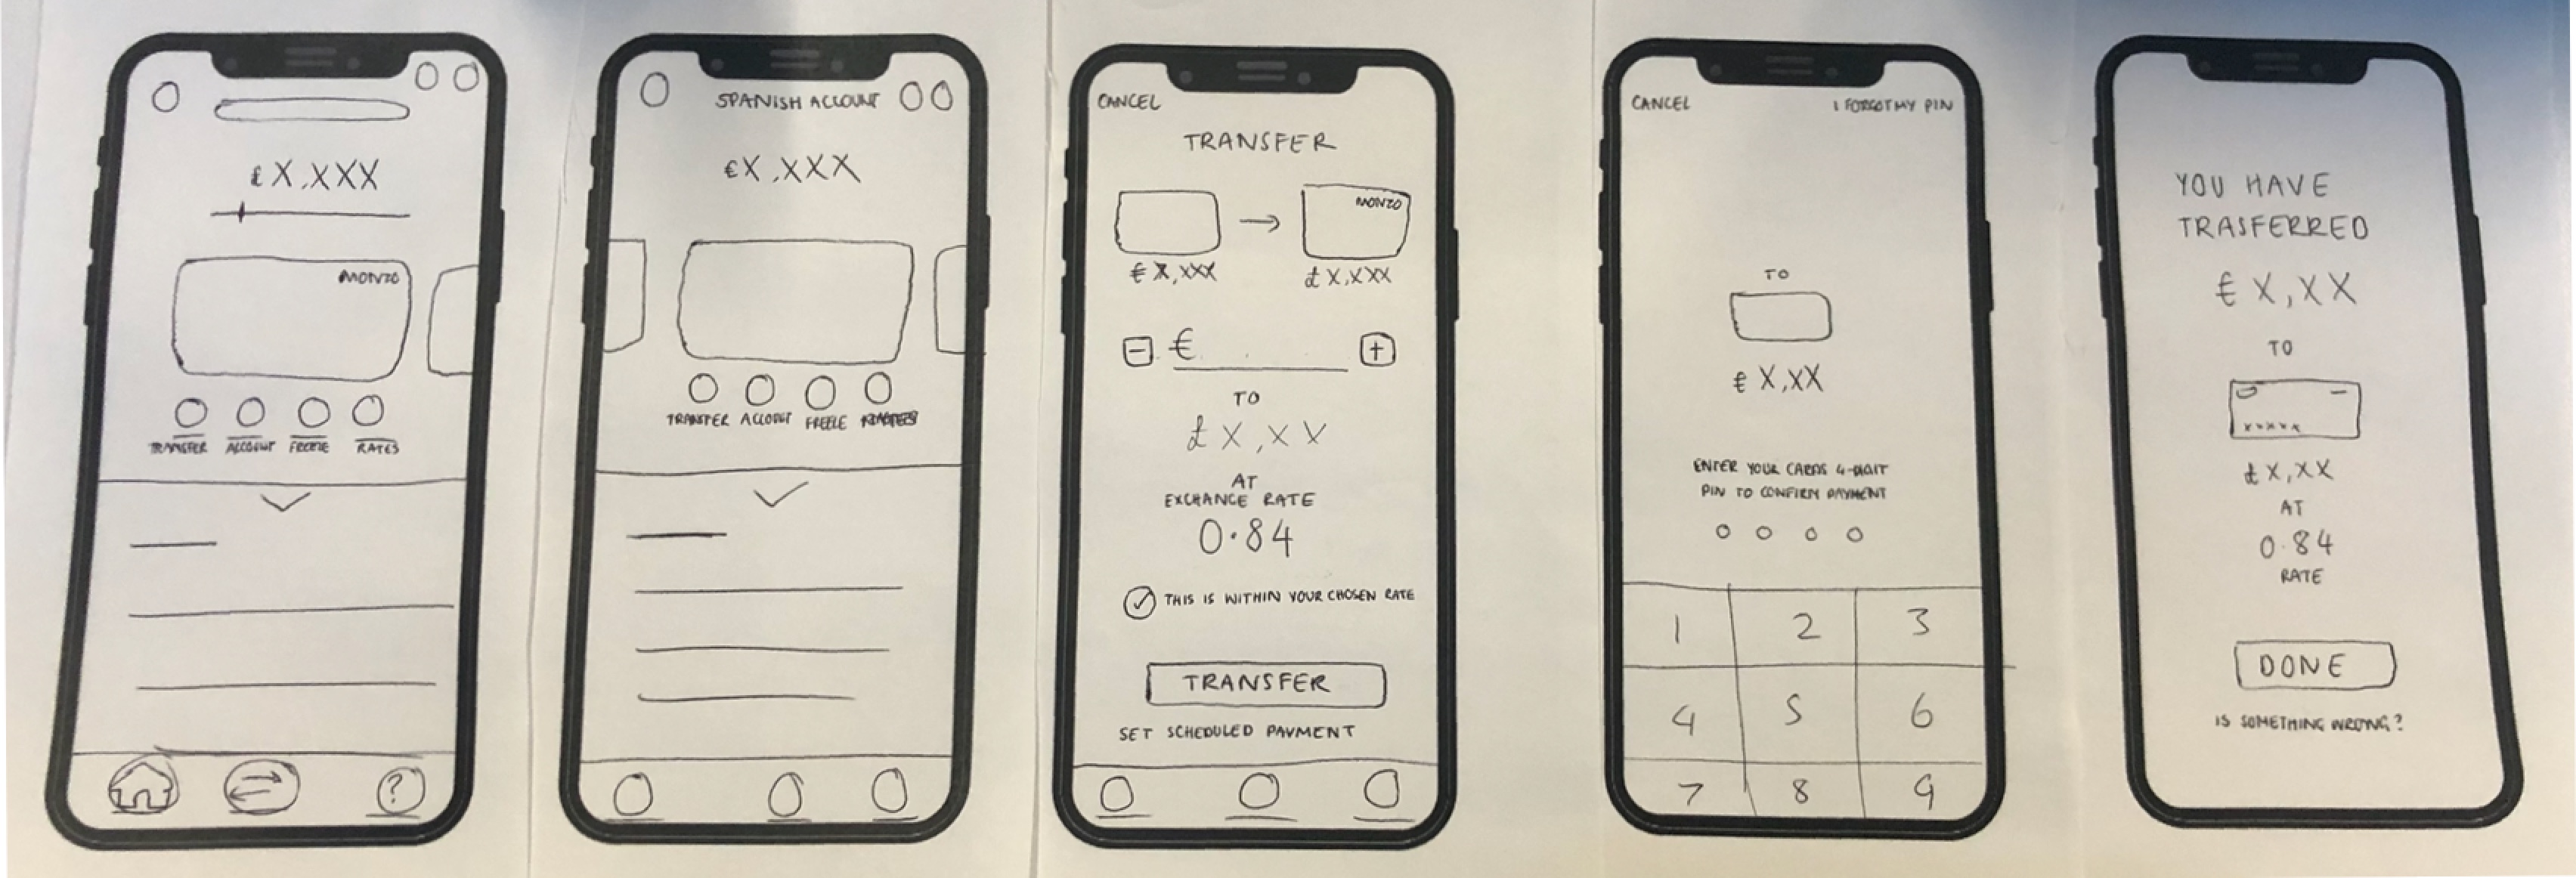 £X,XXX
MONZO
TRANSFER ACCOUNT FREEZE RATES
?
SPANISH ACCOUNT
€X,XXX
TRANSFER ACCOUNT FREEZE
CANCEL
TRANSFER
MONZO
€ X,XXX £X,XXX
- € +
TO
£X,XX
AT
EXCHANGE RATE
0.84
THIS IS WITHIN YOUR CHOSEN RATE
TRANSFER
SET SCHEDULED PAYMENT
CANCEL I FORGOT MY PIN
TO
€ X,XX
ENTER YOUR CARDS 4-DIGIT
PIN TO CONFIRM PAYMENT
1 2 3
4 5 6
7 8 9
YOU HAVE
TRASFERRED
€ X,XX
TO
XXXXX
£X,XX
AT
0.84
RATE
DONE
IS SOMETHING WRONG?